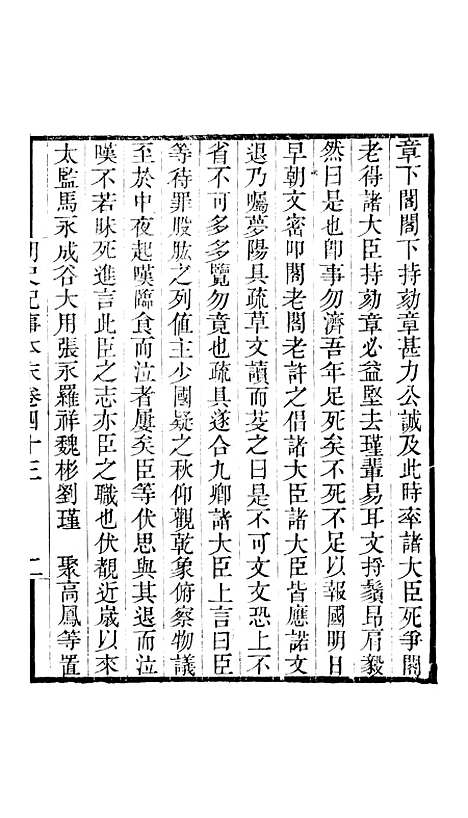 章下閣閣下持劾章甚力公誠及此時率諸大臣死爭閣
老得諸大臣持劾章必益堅去瑾輩易耳文捋鬚昂肩毅
然曰是也卽事勿濟吾年足死矣不死不足以報國明日
早朝文密叩閣老閣老許之倡諸大臣諸大臣皆應諾文
退乃囑夢陽具疏草文讀而芟之曰是不可文文恐上不
省不可多多覽勿竟也疏具遂合九卿諸大臣上言曰臣
等待罪股肱之列值主少國疑之秋仰觀乾象俯察物議
至於中夜起嘆臨食而泣者屢矣臣等伏思與其退而泣
嘆不若昧死進言此臣之志亦臣之職也伏覩近歲以來
太監馬永成谷大用張永羅祥魏彬劉瑾 聚高鳳等置
明史紀事本末卷四十三 二